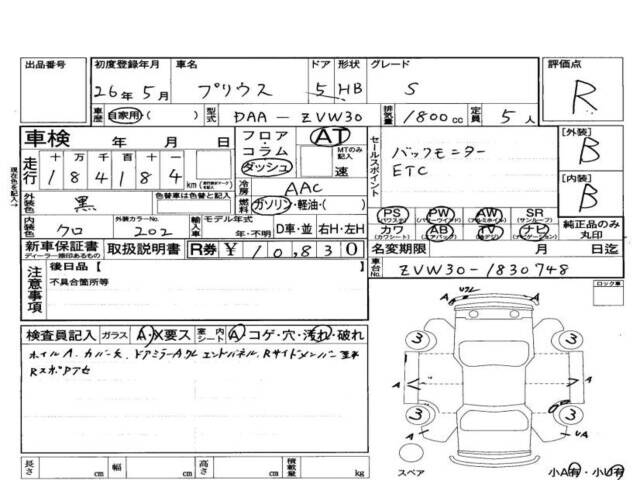 出品番号 初度登録年月 車名 ドア 形状 グレード 評価点
26年 5月 プリウス 5 HB S R
車歴 自家用・( ) 型式 DAA-ZVW30 排気量 1800cc 定員 5人
車検 年 月 日 フロア・コラム・ダッシュ AT MTのみ記入 速 セールスポイント バックモニター [外装] B
ETC
走行 十万千百十一 184184 km
[内装] B
冷房 AAC
外装色 黒 色替車は元色 色替車
燃料 ガソリン・軽油・( )
現在色を記入→
PS (パワステ) PW (パワーウインド) AW (アルミホイル) SR (サンルーフ)
内装色 クロ 外装カラーNo. 202 輸入車 モデル年式 年・不明 D車・並 右H・左H カワ (カワシート) AB (エアバック) TV (地デジ) ナビ (ナビゲーション) 純正品のみ丸印
新車保証書 ディーラー捺印あるもの 取扱説明書 R券 ¥10,830 名変期限 月 日迄
車台No. ZVW30-1830748
注意事項 後日品【
不具合箇所等
ロック車
検査員記入 ガラス A・X要ス 室内シート A・コゲ・穴・汚れ・破れ
3 3
A A A
3 3
A UA
長さ cm 幅 cm 高さ cm 積載量 kg
スペア 小A有・小U有